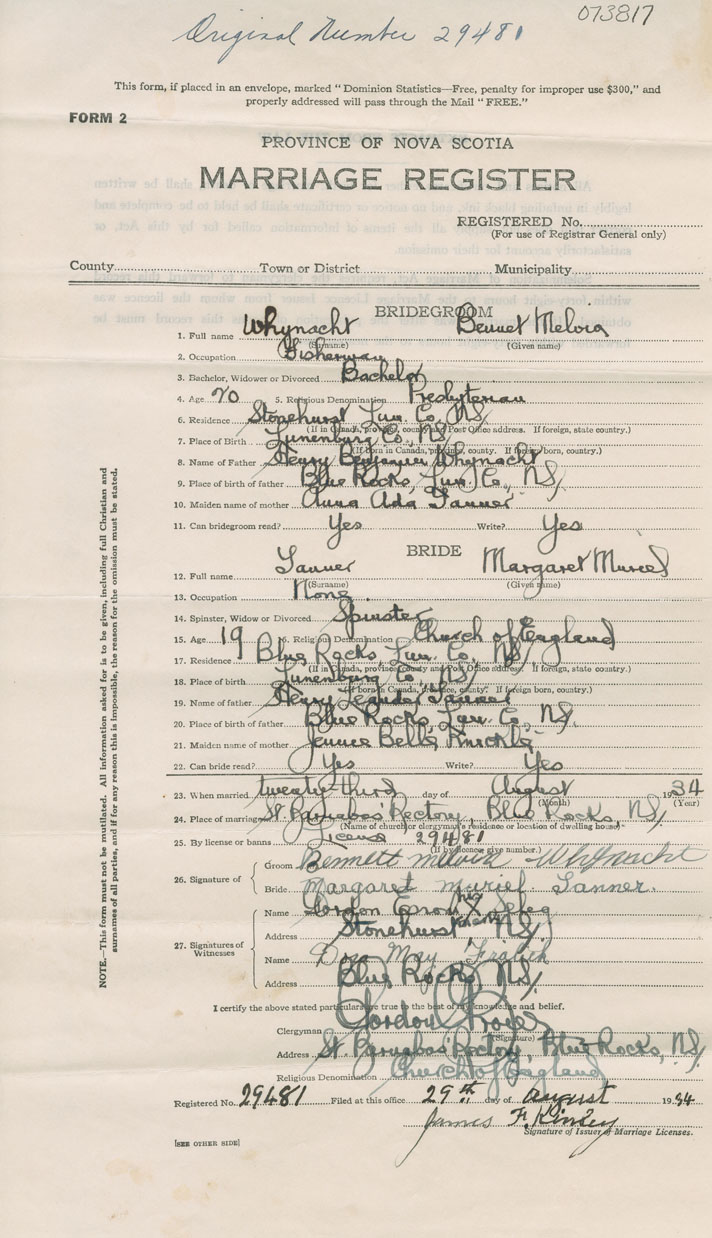 073817
Original Number 29481
This form, if placed in an envelope, marked "Dominion Statistics—Free, penalty for improper use $300," and
properly addressed will pass through the Mail "FREE."
FORM 2
PROVINCE OF NOVA SCOTIA
MARRIAGE REGISTER
REGISTERED No.
(For use of Registrar General only)
County Town or District Municipality
BRIDEGROOM
1. Full name Whynacht Bennet Melvin
(Surname) (Given name)
2. Occupation Fisherman
3. Bachelor, Widower or Divorced Bachelor
4. Age 20 5. Religious Denomination Presbyterian
6. Residence Stonehurst Lun. Co., N.S.
(If in Canada, province, county and Post Office address. If foreign, state country.)
7. Place of Birth Lunenburg Co., N.S.
(If born in Canada, province, county. If foreign born, country.)
8. Name of Father Henry Benjamin Whynacht
9. Place of birth of father Blue Rocks, Lun. Co., N.S.
10. Maiden name of mother Anna Ada Tanner
11. Can bridegroom read? Yes Write? Yes
BRIDE
12. Full name Tanner Margaret Muriel
(Surname) (Given name)
13. Occupation None
14. Spinster, Widow or Divorced Spinster
15. Age 19 16. Religious Denomination Church of England
17. Residence Blue Rocks, Lun. Co., N.S.
(If in Canada, province, county and Post Office address. If foreign, state country.)
18. Place of birth Lunenburg Co., N.S.
(If born in Canada, province, county. If foreign born, country.)
19. Name of father Henry Tanner
20. Place of birth of father Blue Rocks, Lun. Co., N.S.
21. Maiden name of mother Jennie Belle Knickle
22. Can bride read? Yes Write? Yes
23. When married twenty-third day of August 1934
(Month) (Year)
24. Place of marriage St Barnabas' Rectory, Blue Rocks, N.S.
(Name of church or clergyman's residence or location of dwelling house)
25. By license or banns License 29481
(If by licence give number.)
26. Signature of
Groom Bennett Melvin Whynacht
Bride Margaret Muriel Tanner.
27. Signatures of Witnesses
Name Gordon his X
Address Stonehurst mark N.S.
Name May
Address Blue Rocks, N.S.
I certify the above stated particulars are true to the best of my knowledge and belief.
Clergyman Gordon
(Signature)
Address St Barnabas' Rectory, Blue Rocks, N.S.
Religious Denomination Church of England
Registered No. 29481 Filed at this office 29th day of August 1934
James F. Kinley
Signature of Issuer of Marriage Licenses.
[SEE OTHER SIDE]
NOTE.—This form must not be mutilated. All information asked for is to be given, including full Christian and
surnames of all parties, and if for any reason this is impossible, the reason for the omission must be stated.